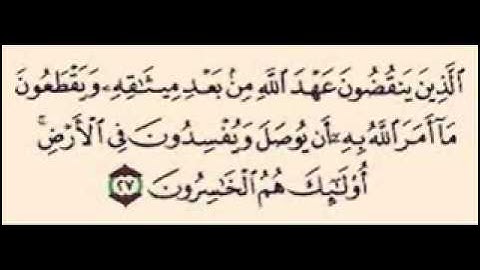 ٱلَّذِينَ يَنقُضُونَ عَهْدَ ٱللَّهِ مِنۢ بَعْدِ مِيثَـٰقِهِۦ وَيَقْطَعُونَ
مَآ أَمَرَ ٱللَّهُ بِهِۦٓ أَن يُوصَلَ وَيُفْسِدُونَ فِى ٱلْأَرْضِ ۚ
أُو۟لَـٰٓئِكَ هُمُ ٱلْخَـٰسِرُونَ ٢٧